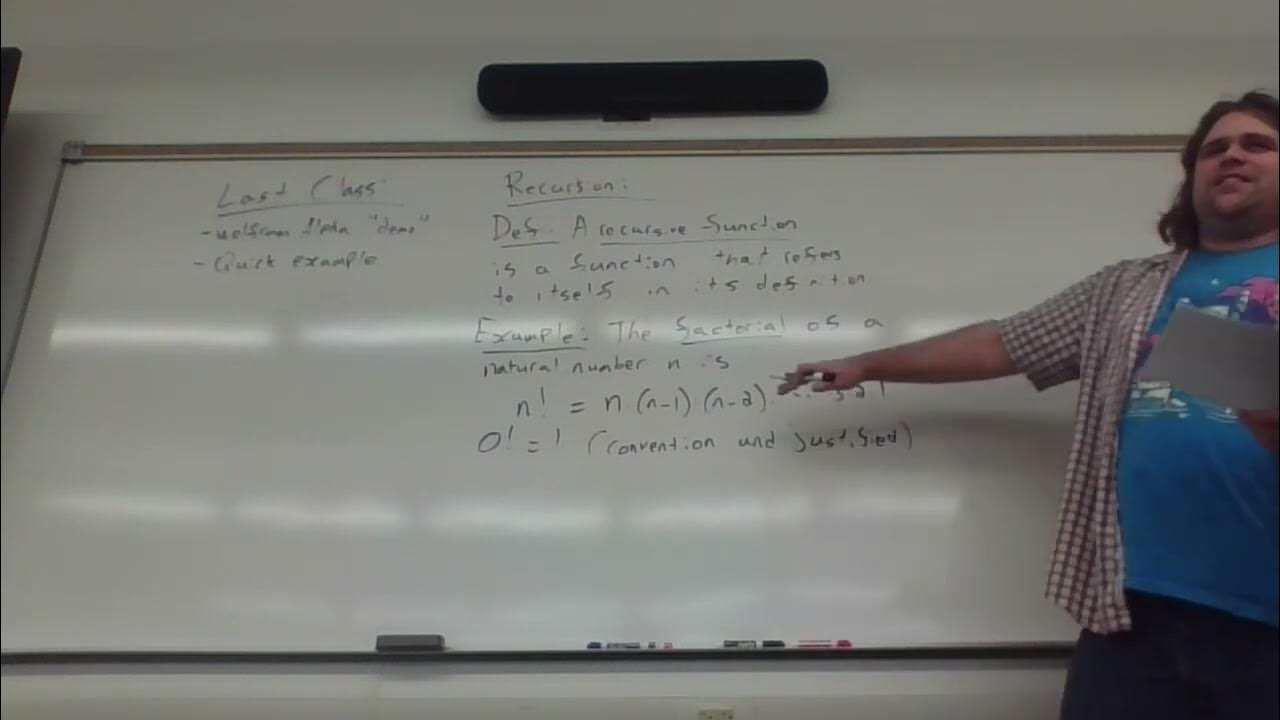 Last Class:
- Wolfram Alpha "demo"
- Quick example
Recursion:
Def: A recursive function
is a function that refers
to itself in its definition
Example: The factorial of a
natural number n is
n! = n (n-1) (n-2) ... 3 2 1
0! = 1 (convention and justified)